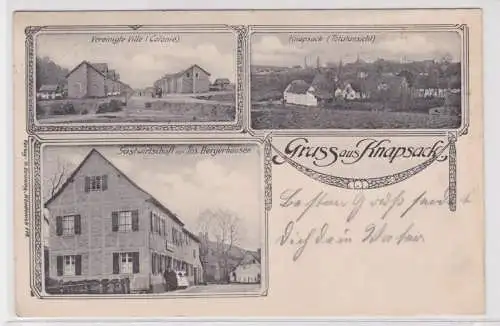 Vereinigte Ville (Colonie).
Knapsack (Totalansicht)
Gastwirtschaft von Jos. Bergerhausen
Gruss aus Knapsack
Besten Gruß sendet
Dich dein Vater